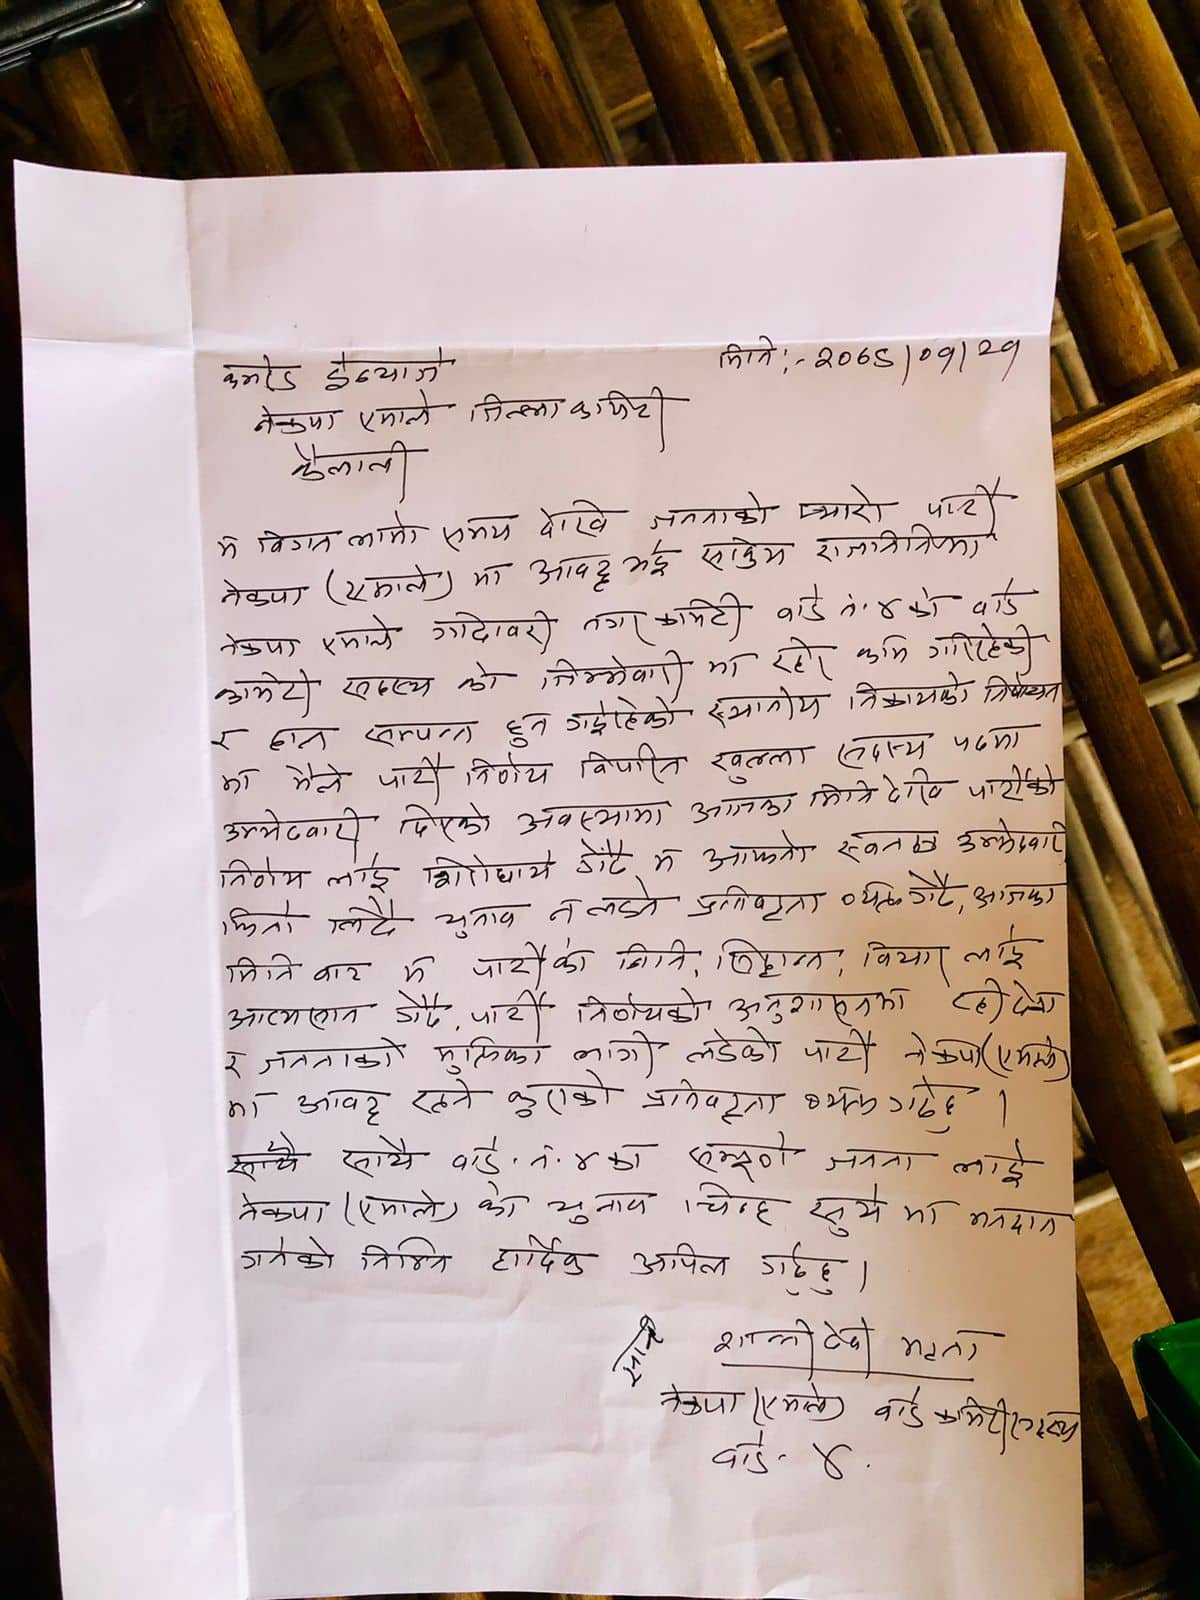 कमरेड ईन्चार्ज
मिति:- २०७९/०१/२१
नेकपा एमाले जिल्ला कमिटी
कैलाली
म विगत लामो समय देखि जनताको प्यारो पार्टी
नेकपा (एमाले) मा आवद्ध भई सक्रिय राजनितिमा
नेकपा एमाले गोदावरी नगर कमिटी वार्ड नं. ४ को वार्ड
कमिटी सदस्य को जिम्मेवारी मा रही काम गरिरहेकी
र हाल सम्पन्न हुन गईरहेको स्थानीय निकायको निर्वाचन
मा मैले पार्टी निर्णय विपरित खुल्ला सदस्य पदमा
उम्मेदवारी दिएको अवस्थामा आजका मिति देखि पार्टीको
निर्णय लाई शिरोधार्य गर्दै म आफ्नो स्वतन्त्र उम्मेदवारी
फिर्ता लिदै चुनाव न लड्ने प्रतिवद्दता व्यक्त गर्दै, आजका
मिति बाट म पार्टीको निति, सिद्धान्त, विचार लाई
आत्मसात गर्दै, पार्टी निर्णयको अनुशासनमा रही देश
र जनताको मुक्तिका लागी लडेको पार्टी नेकपा (एमाले)
मा आवद्द रहने कुराको प्रतिवद्दता व्यक्त गर्दछु ।
साथै साथै वार्ड नं. ४ का सम्पूर्ण जनता लाई
नेकपा (एमाले) को चुनाव चिन्ह सुर्य मा मतदान
गर्नको निम्ति हार्दिक अपिल गर्दछु ।
शान्ती देवी
नेकपा (एमाले) वार्ड कमिटी सदस्य
वार्ड - ४ .